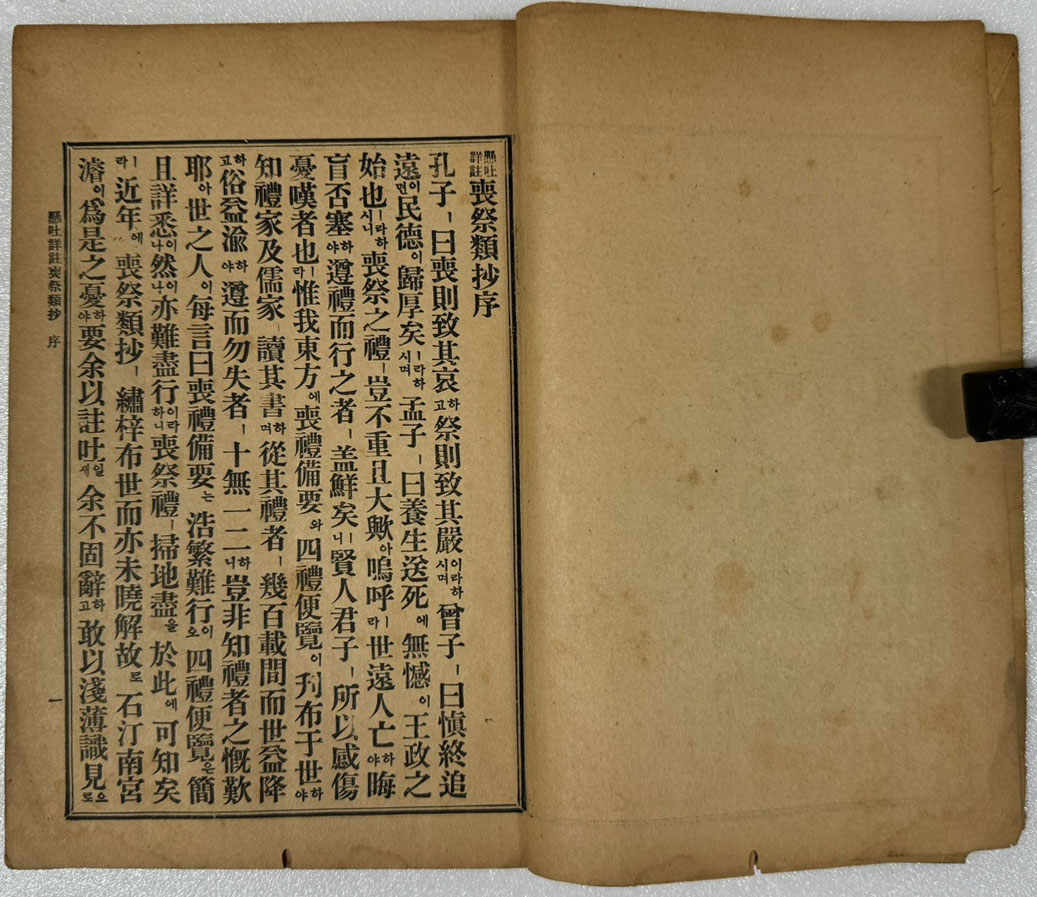 懸吐詳註喪祭類抄序
孔子ㅣ曰喪則致其哀하고祭則致其嚴이라하시며曾子ㅣ曰愼終追
遠이면民德이歸厚矣ㅣ라하시며孟子ㅣ曰養生送死에無憾이王政之
始也ㅣ라하시니喪祭之禮ㅣ豈不重且大歟아嗚呼ㅣ라世遠人亡하야晦
盲否塞하야遵禮而行之者ㅣ盖鮮矣ㅣ니賢人君子ㅣ所以感傷
憂嘆者也ㅣ라惟我東方에喪禮備要와四禮便覽이刊布于世하야
知禮家及儒家ㅣ讀其書하며從其禮者ㅣ幾百載間而世益降
하고俗益渝하야遵而勿失者ㅣ十無一二하니豈非知禮者之慨歎
耶아世之人이每言曰喪禮備要는浩繁難行이오四禮便覽은簡
且詳悉이나然이나亦難盡行이라하니喪祭禮ㅣ掃地盡을於此에可知矣
ㅣ라近年에喪祭類抄ㅣ繡梓布世而亦未曉解故로石汀南宮
濬이爲是之憂하야要余以註吐일새余不固辭하고敢以淺薄識見으로
懸吐詳註喪祭類抄 序
一